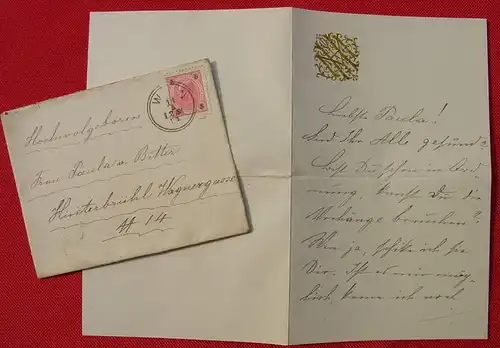 Hochwolgeboren
Frau Paula v. Bitter
Hinterbrühl, Wagnergasse
№ 14
Liebste Paula!
Seid Ihr Alle gesund?
bist Du schon in Ord-
nung, kannst Du die
Vorhänge brauchen?
Wenn ja, schike ich sie
Dir. Ist es mir mög-
lich, komme ich noch